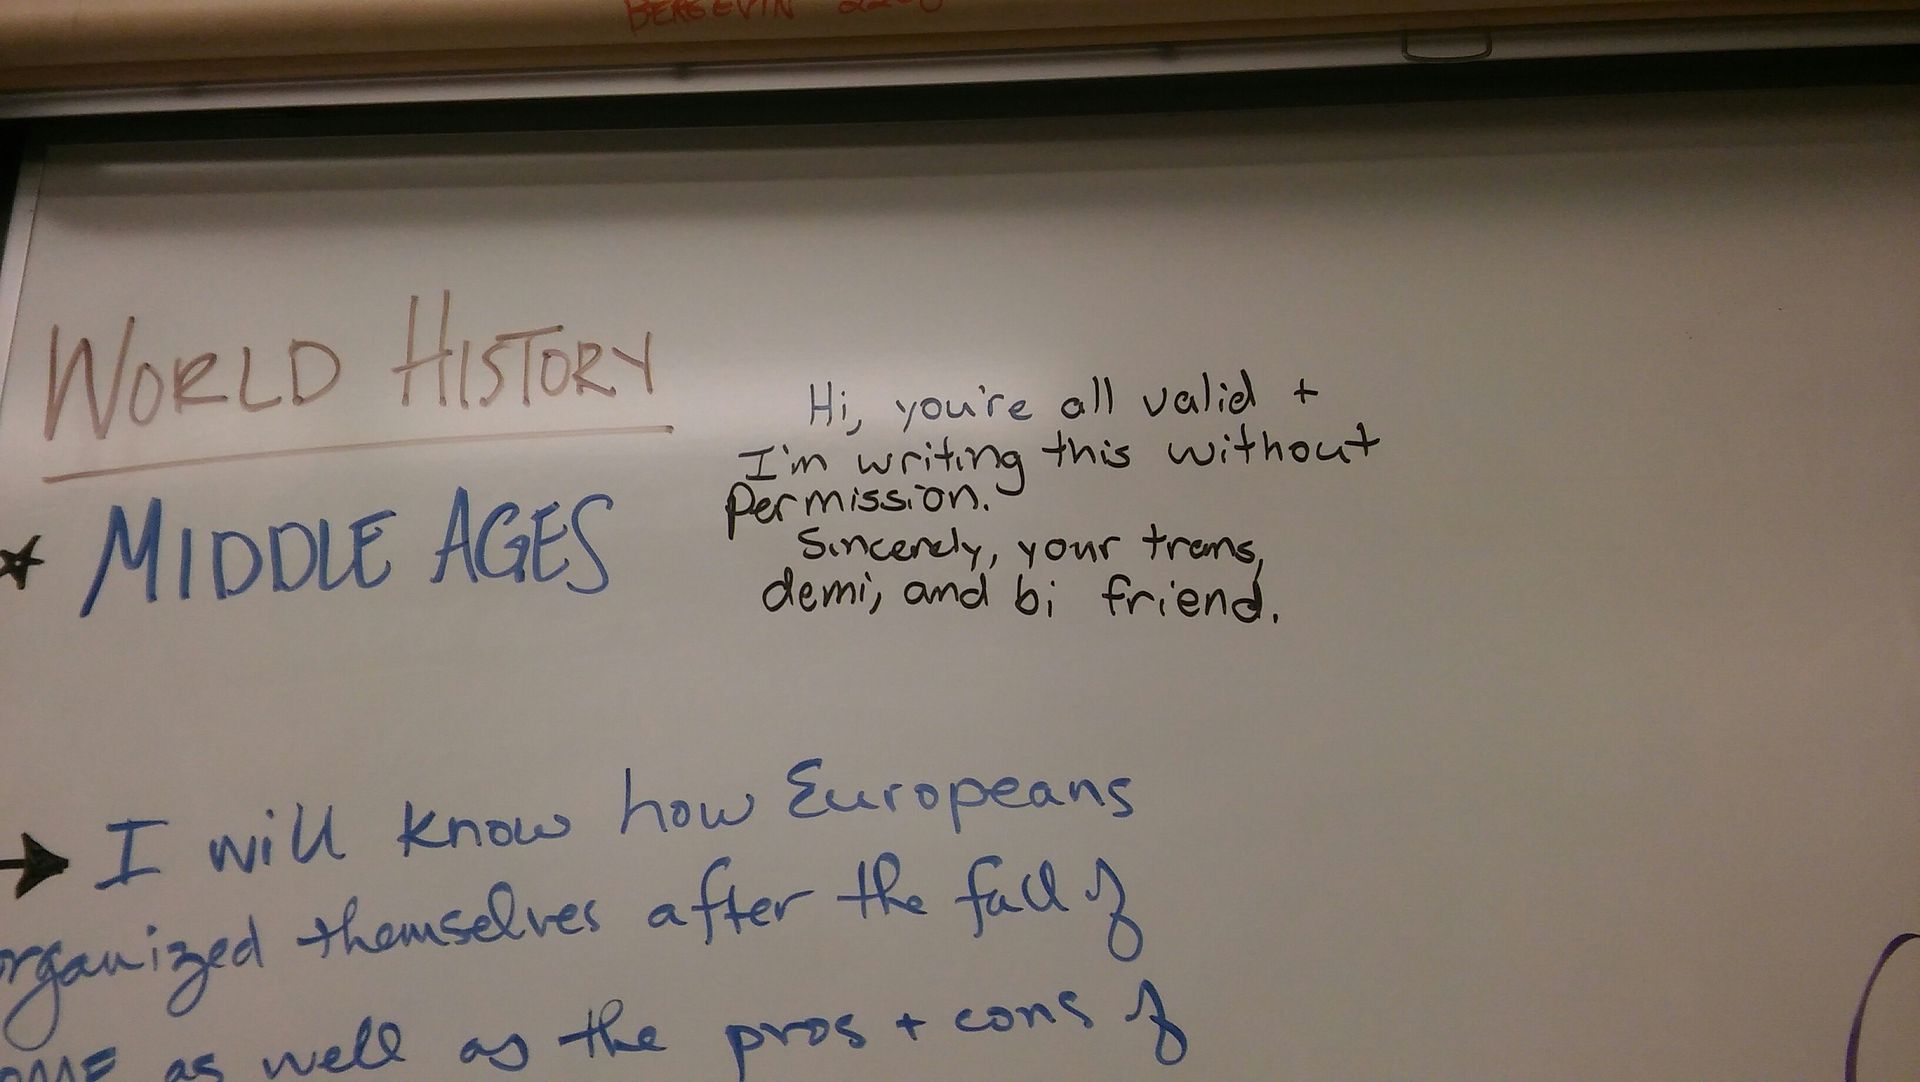 BERGEVIN
WORLD HISTORY
Hi, you're all valid +
I'm writing this without
Permission.
Sincerely, your trans,
demi, and bi friend.
★ MIDDLE AGES
→ I will know how Europeans
organized themselves after the fall of
as well as the pros + cons of